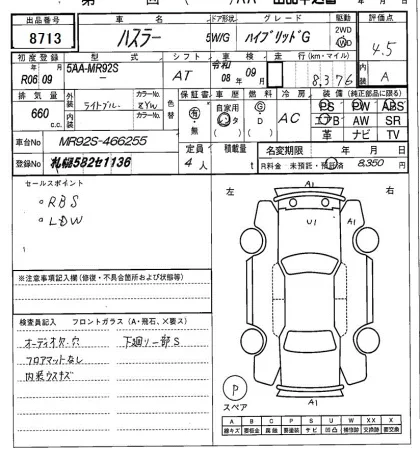 出品番号 車名 ドア形状 グレード 駆動 評価点
8713 ハスラー 5W/G ハイブリッドG 2WD 4WD 4.5
初度登録 型式 シフト 車検 走行(km・マイル) 内装
R06年09月 5AA-MR92S AT 令和08年09月 8,376 A
排気量 外装 ライトブルー カラーNo. ZYW 色替 保証書 車歴 燃料 冷房 装備(純正部品に限る)
660 c.c. 内装 カラーNo. 有・無 自家用 G・D AC PS PW ABS
エアB AW SR
革 ナビ TV
車台No MR92S-466255 定員 積載量 名変期限 年 月 日
登録No 札幌582セ1136 4人 t R料金 未預託・預託済 8,350円
セールスポイント
○RBS
○LDW
左 右
A1
U1 A1
※注意事項記入欄(修復・不具合箇所および状態等)
検査員記入 フロントガラス(A・飛石、X要ス)
オーディオカバー穴 下廻り一部S
フロアマットなし
内装ウスキズ
A1
P
スペア
A B C P S U W XX X
線キズ 要板金 腐蝕 要塗装 サビ 凹凸 補修跡 交換跡 要交換